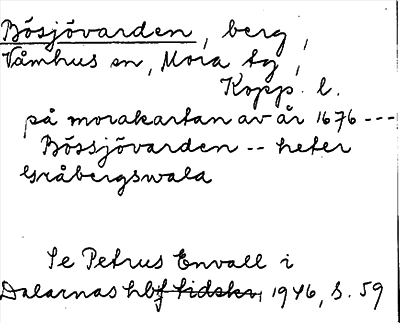 Bösjövarden, berg,
Våmhus sn, Mora tg,
Kopp. l.
på morakartan av år 1676 ---
Bössjövarden -- heter
Gråbergswala
Se Petrus Envall i
Dalarnas hbf tidskr, 1946, s. 59